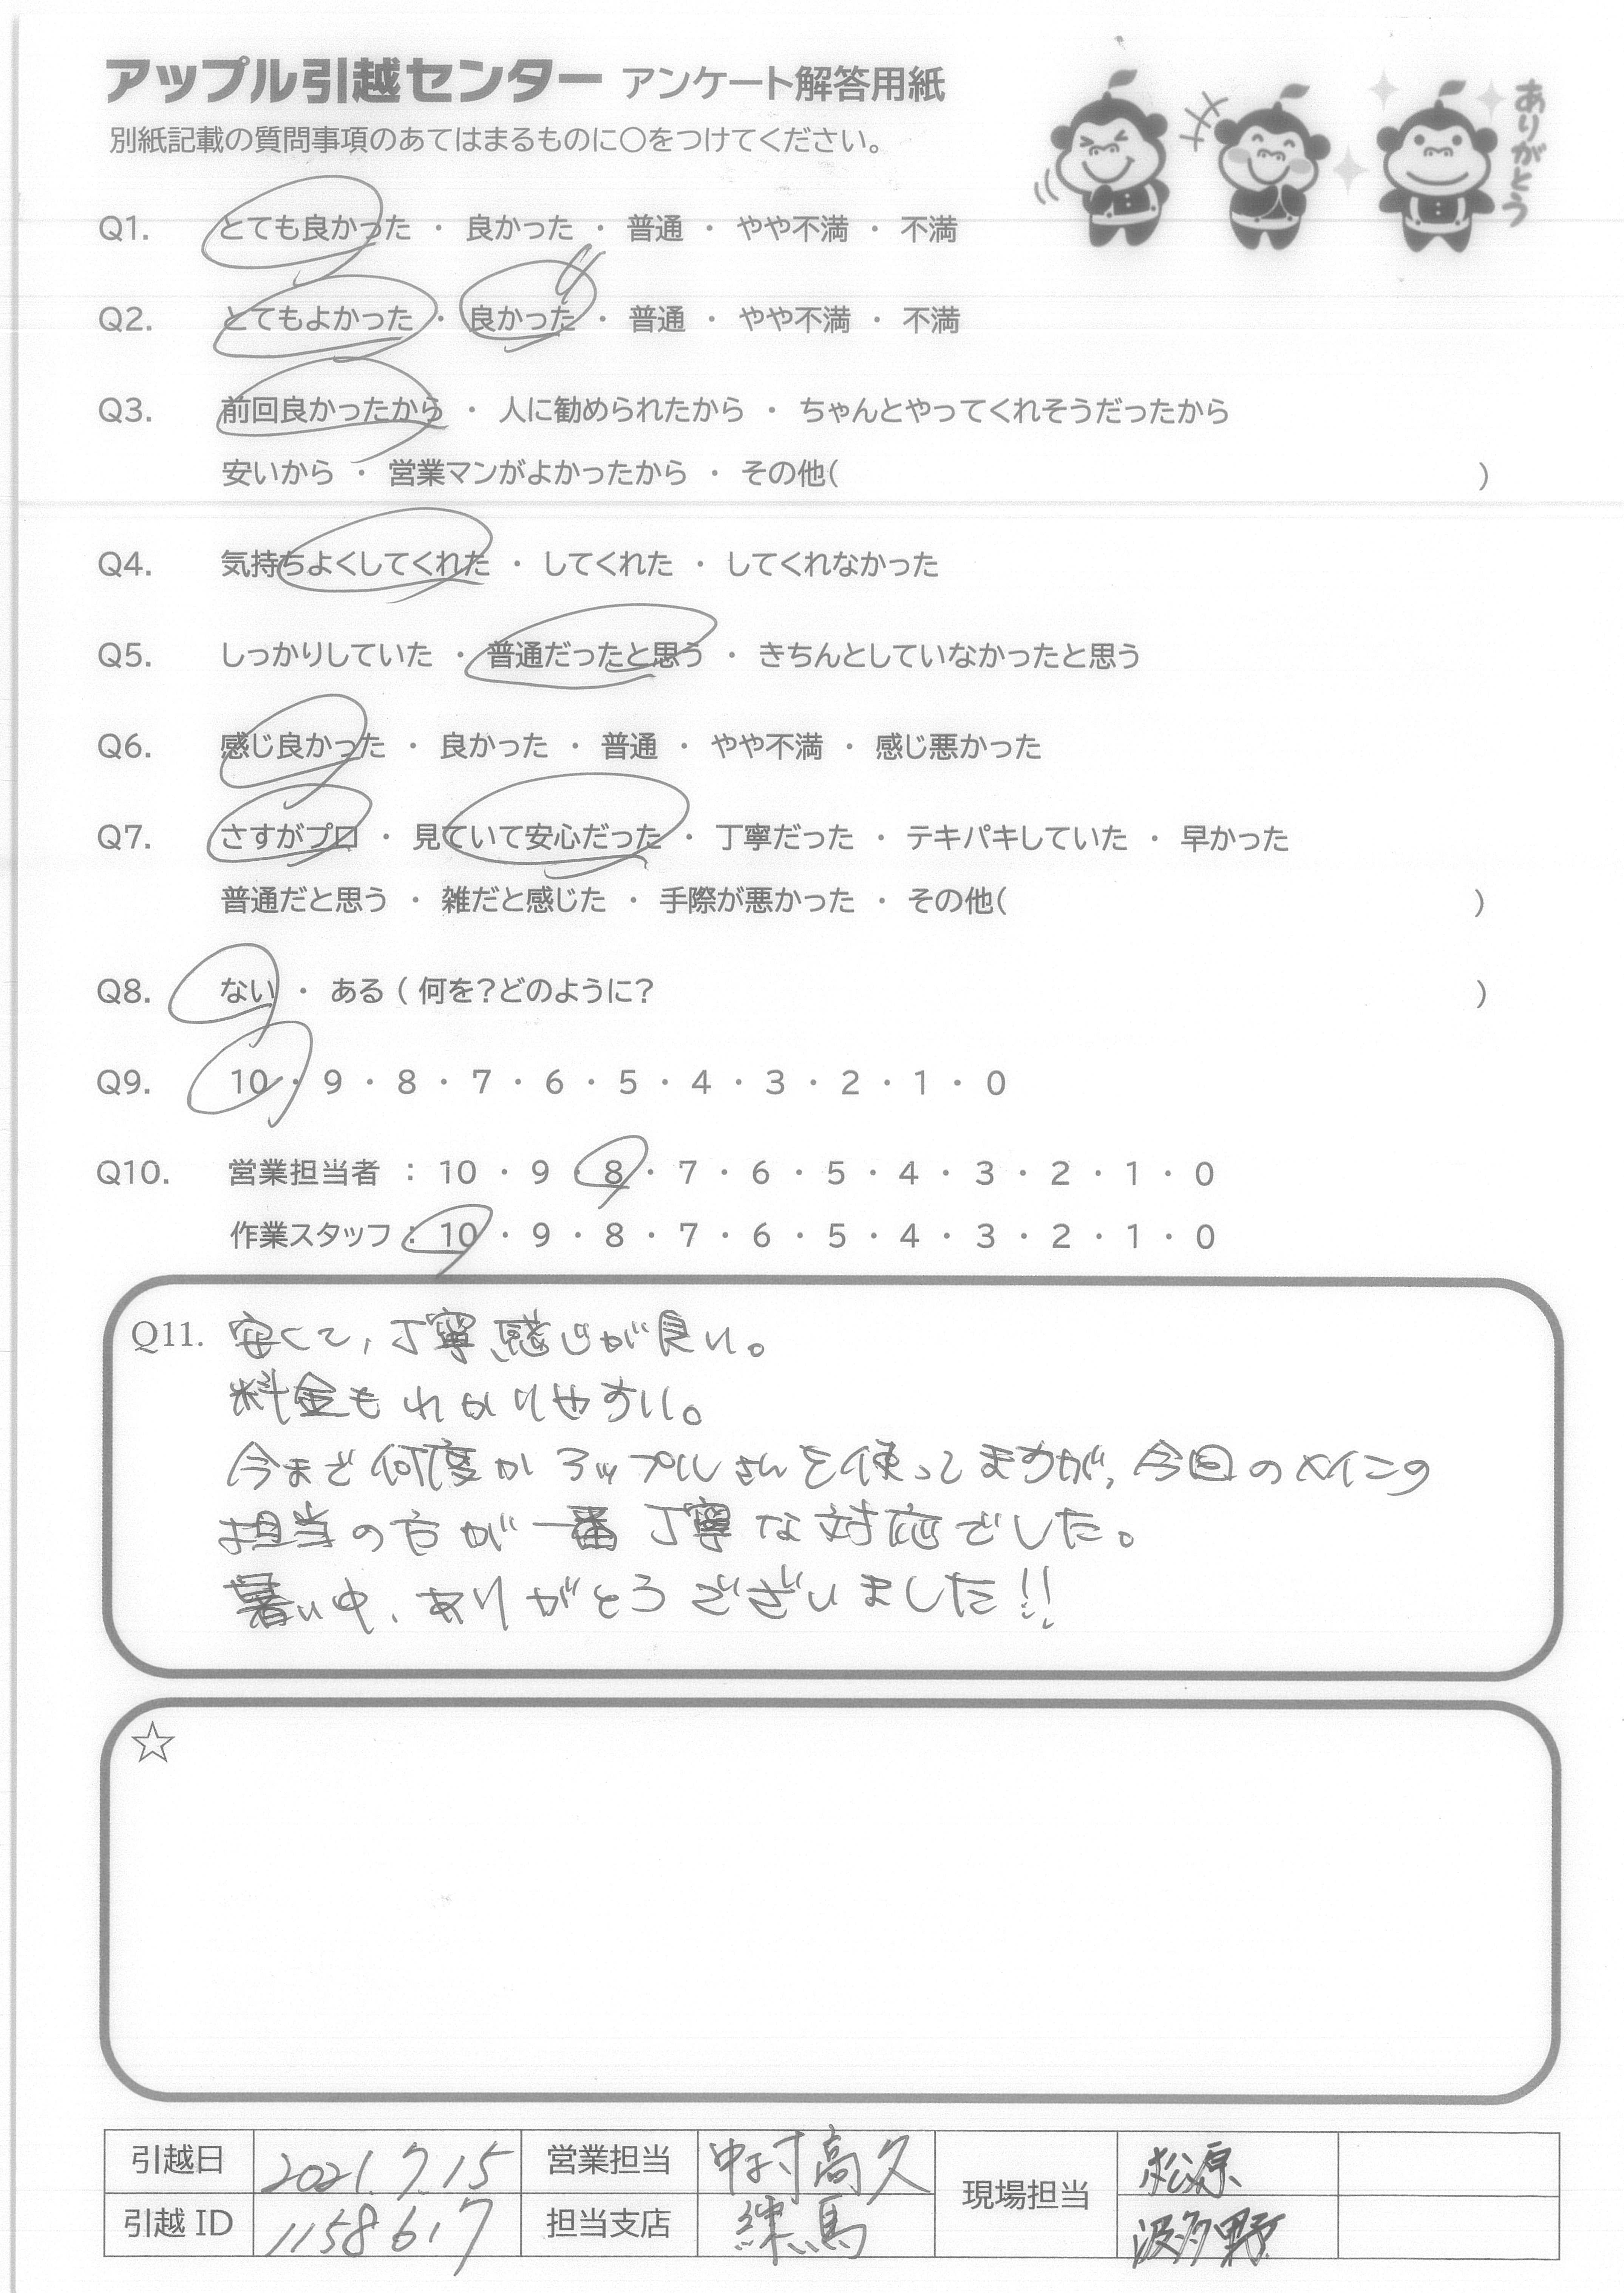 アップル引越センター アンケート解答用紙
ありがとう
別紙記載の質問事項のあてはまるものに○をつけてください。
Q1. とても良かった ・ 良かった ・ 普通 ・ やや不満 ・ 不満
Q2. とてもよかった ・ 良かった ・ 普通 ・ やや不満 ・ 不満
Q3. 前回良かったから ・ 人に勧められたから ・ ちゃんとやってくれそうだったから
安いから ・ 営業マンがよかったから ・ その他( )
Q4. 気持ちよくしてくれた ・ してくれた ・ してくれなかった
Q5. しっかりしていた ・ 普通だったと思う ・ きちんとしていなかったと思う
Q6. 感じ良かった ・ 良かった ・ 普通 ・ やや不満 ・ 感じ悪かった
Q7. さすがプロ ・ 見ていて安心だった ・ 丁寧だった ・ テキパキしていた ・ 早かった
普通だと思う ・ 雑だと感じた ・ 手際が悪かった ・ その他( )
Q8. ない ・ ある ( 何を?どのように? )
Q9. 10 ・ 9 ・ 8 ・ 7 ・ 6 ・ 5 ・ 4 ・ 3 ・ 2 ・ 1 ・ 0
Q10. 営業担当者 : 10 ・ 9 ・ 8 ・ 7 ・ 6 ・ 5 ・ 4 ・ 3 ・ 2 ・ 1 ・ 0
作業スタッフ : 10 ・ 9 ・ 8 ・ 7 ・ 6 ・ 5 ・ 4 ・ 3 ・ 2 ・ 1 ・ 0
Q11. 安くて、丁寧、感じが良い。
料金もわかりやすい。
今まで何度かアップルさんを使ってますが、今回のメインの
担当の方が一番丁寧な対応でした。
暑い中、ありがとうございました!!
☆
引越日 2021.7.15 営業担当 中村高久 現場担当 松原
引越 ID 1158617 担当支店 練馬 波多野